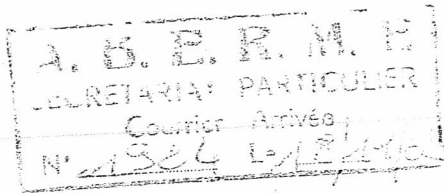 A. B. E. R. M. E
SECRETARIAT PARTICULIER
Courrier Arrivée
N° 1924 Le